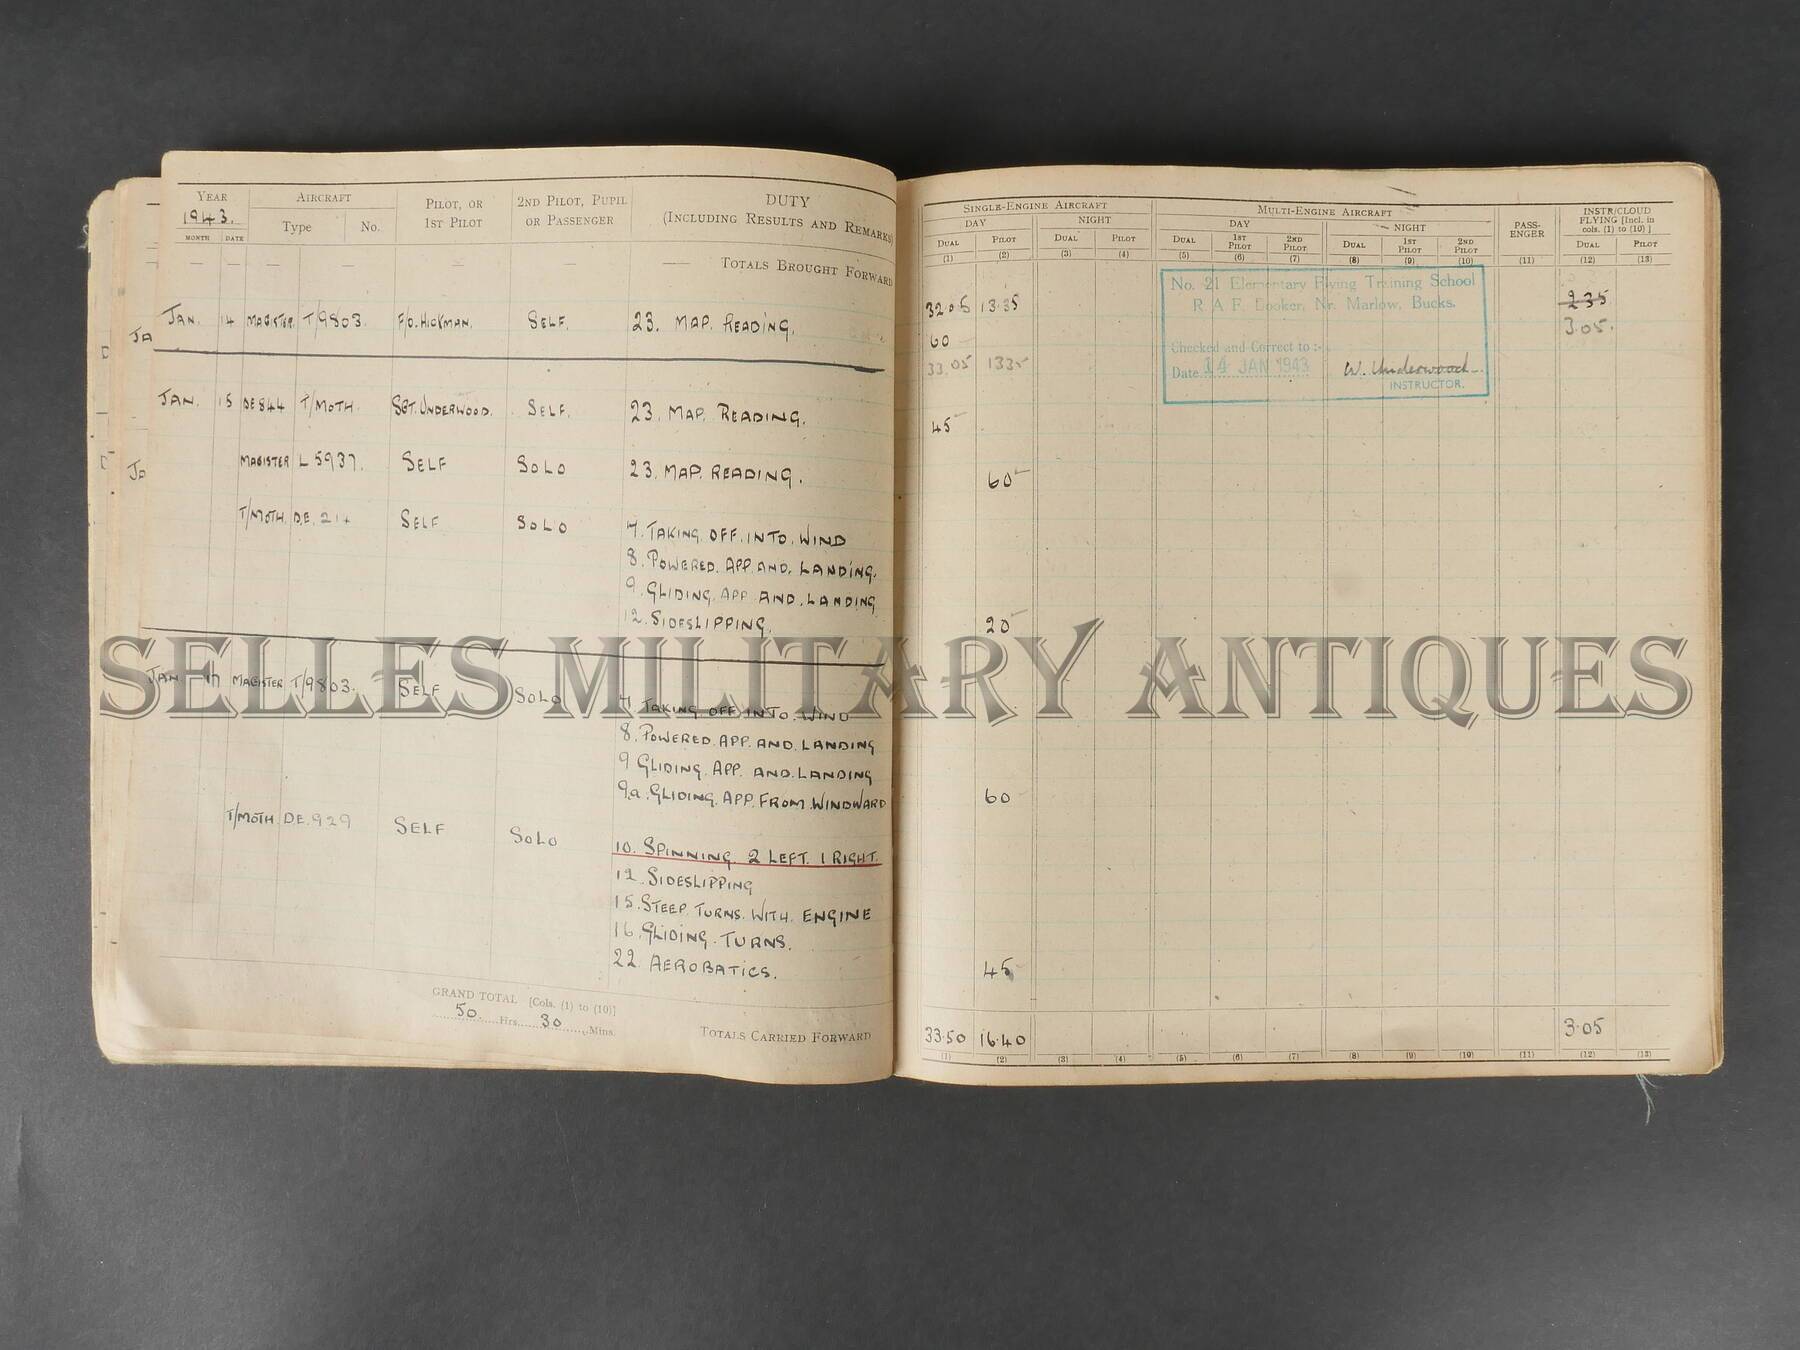 YEAR AIRCRAFT PILOT, OR 1ST PILOT 2ND PILOT, PUPIL OR PASSENGER DUTY (INCLUDING RESULTS AND REMARKS)
1943. Type No.
MONTH DATE
— — — — — — — TOTALS BROUGHT FORWARD
JAN. 14 MAGISTER T/9803. F/O. HICKMAN. SELF. 23. MAP. READING.
JAN. 15 DE844 T/MOTH. SGT. UNDERWOOD. SELF. 23. MAP. READING.
MAGISTER L5937. SELF SOLO 23. MAP. READING.
T/MOTH. D.E. 214 SELF SOLO 7. TAKING. OFF. INTO. WIND
8. POWERED. APP. AND. LANDING.
9. GLIDING. APP AND. LANDING
12. SIDESLIPPING.
JAN 17 MAGISTER T/9803. SELF SOLO 7. TAKING OFF INTO. WIND
8. POWERED. APP. AND. LANDING
9 GLIDING. APP. AND. LANDING
9a. GLIDING. APP. FROM. WINDWARD
T/MOTH D.E. 929 SELF SOLO 10. SPINNING. 2 LEFT. 1 RIGHT.
12. SIDESLIPPING
15. STEEP. TURNS. WITH. ENGINE
16. GLIDING. TURNS.
22. AEROBATICS.
GRAND TOTAL [Cols. (1) to (10)]
50 Hrs. 30 Mins.
TOTALS CARRIED FORWARD
JA
JA
SINGLE-ENGINE AIRCRAFT MULTI-ENGINE AIRCRAFT PASS-ENGER INSTR/CLOUD FLYING [Incl. in cols. (1) to (10)]
DAY NIGHT DAY NIGHT
DUAL PILOT DUAL PILOT DUAL 1ST PILOT 2ND PILOT DUAL 1ST PILOT 2ND PILOT DUAL PILOT
(1) (2) (3) (4) (5) (6) (7) (8) (9) (10) (11) (12) (13)
32.05 13.35 2 35
60 3.05.
33.05 1335
No. 21 Elementary Flying Training School
R.A.F. Booker, Nr. Marlow, Bucks.
Checked and Correct to :-
Date 14 JAN 1943 W. Underwood
INSTRUCTOR.
45
60
20
60
45
33.50 16.40 3.05
(1) (2) (3) (4) (5) (6) (7) (8) (9) (10) (11) (12) (13)
SELLES MILITARY ANTIQUES